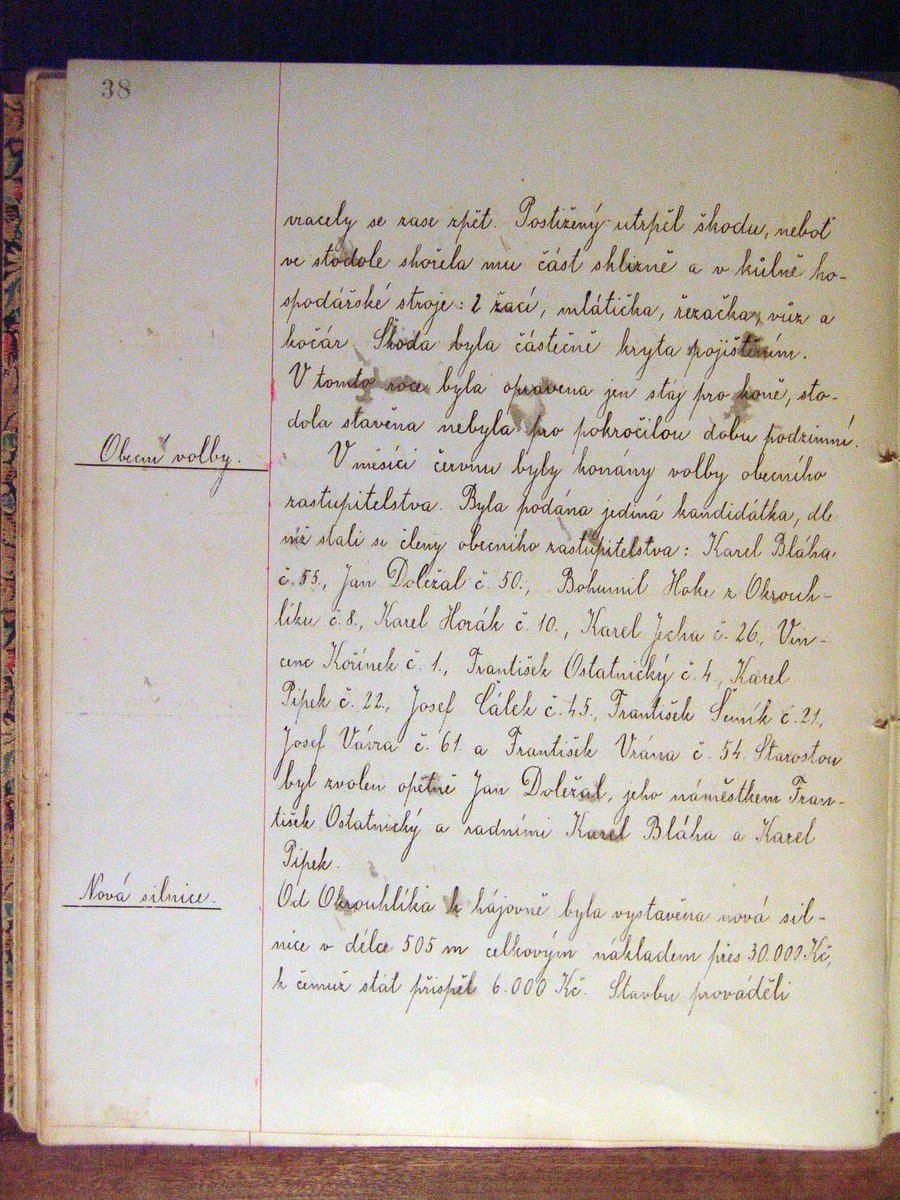 38
vracely se zase zpět. Postižený utrpěl škodu, neboť
ve stodole shořela mu část sklizně a v kůlně ho-
spodářské stroje: 2 žací, mlátička, řezačka, vůz a
kočár. Škoda byla částečně kryta pojištěním.
V tomto roce byla opravena jen stáj pro koně, sto-
dola stavěna nebyla pro pokročilou dobu podzimní.
Obecní volby.
V měsíci červnu byly konány volby obecního
zastupitelstva. Byla podána jediná kandidátka, dle
níž stali se členy obecního zastupitelstva: Karel Bláha
č. 55., Jan Doležal č. 50., Bohumil Hoke z Okrouh-
líku č. 8., Karel Horák č. 10., Karel Jecha č. 26., Vin-
cenc Kořínek č. 1., František Ostatnický č. 4., Karel
Pipek č. 22., Josef Sálek č. 45., František Šemík č. 21.,
Josef Vávra č. 61. a František Vrána č. 54. Starostou
byl zvolen opětně Jan Doležal, jeho náměstkem Fran-
tišek Ostatnický a radními Karel Bláha a Karel
Pipek.
Nová silnice.
Od Okrouhlíka k hájovně byla vystavěna nová sil-
nice v délce 505 m celkovým nákladem přes 30.000 Kč,
k čemuž stát přispěl 6.000 Kč. Stavbu prováděli